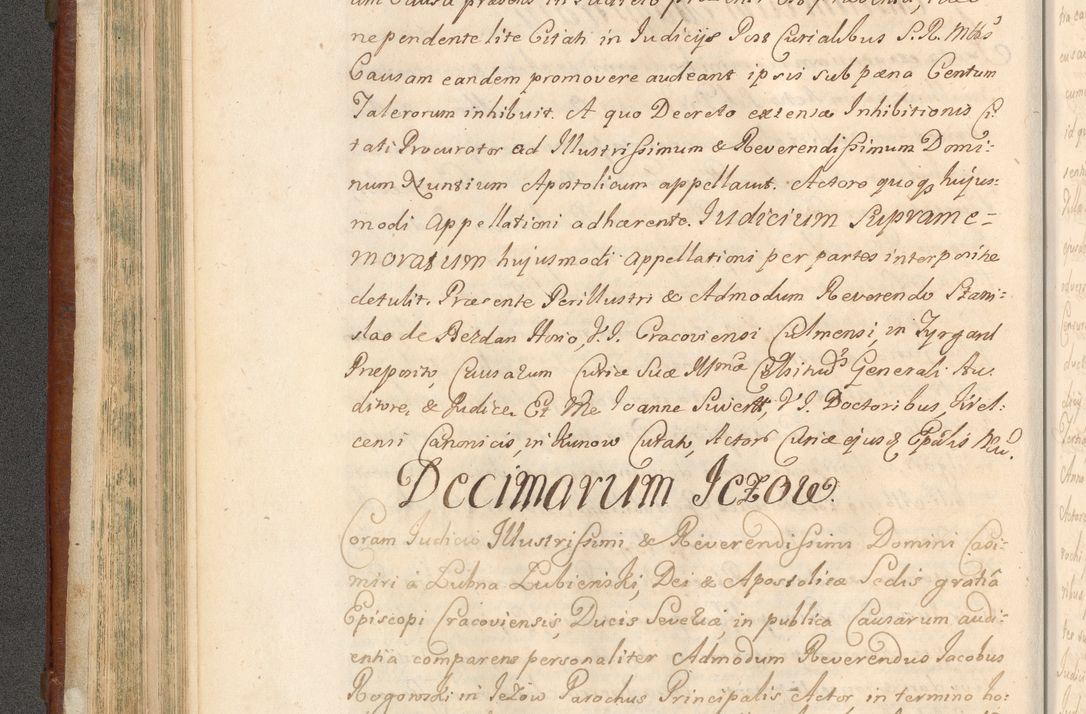 nependente lite Citati in Judicijs Post Curialibus S. R. Mttis
Causam eandem promovere audeant ipsis sub pæna Centum
Talerorum inhibuit. A quo Decreto extensæ Inhibitionis Ci-
tati Procurator ad Illustrissimum & Reverendissimum Domi-
num Nuntium Apostolicum appellavit. Actore quoq hujus-
modi Appellationi adhærente. Judicium Suprame-
moratum hujusmodi Appellationi per partes interpositæ
detulit. Præsente Perillustri & Admodum Reverendo Stani-
slao de Bezdan Hosio, V. J. Cracoviensi Culmensi, in
Præposito, Causarum Curiæ Suæ Illmæ Celsitudis Generali Au-
ditore, & Judice. Et Me Joanne V. J. Doctoribus, Kiel-
censi Canonicis, in Kunow Curato, Actor Curiæ ejus
Decimarum Jezow.
Coram Judicio Illustrissimi & Reverendissimi Domini Casi-
miri à Lubna Lubienski, Dei & Apostolicæ Sedis gratiâ
Episcopi Cracoviensis, Ducis Severiæ, in publica Causarum audi-
entia comparens personaliter Admodum Reverendus Jacobus
Rogowski in Jezow Parochus Principalis Actor in termino ho-